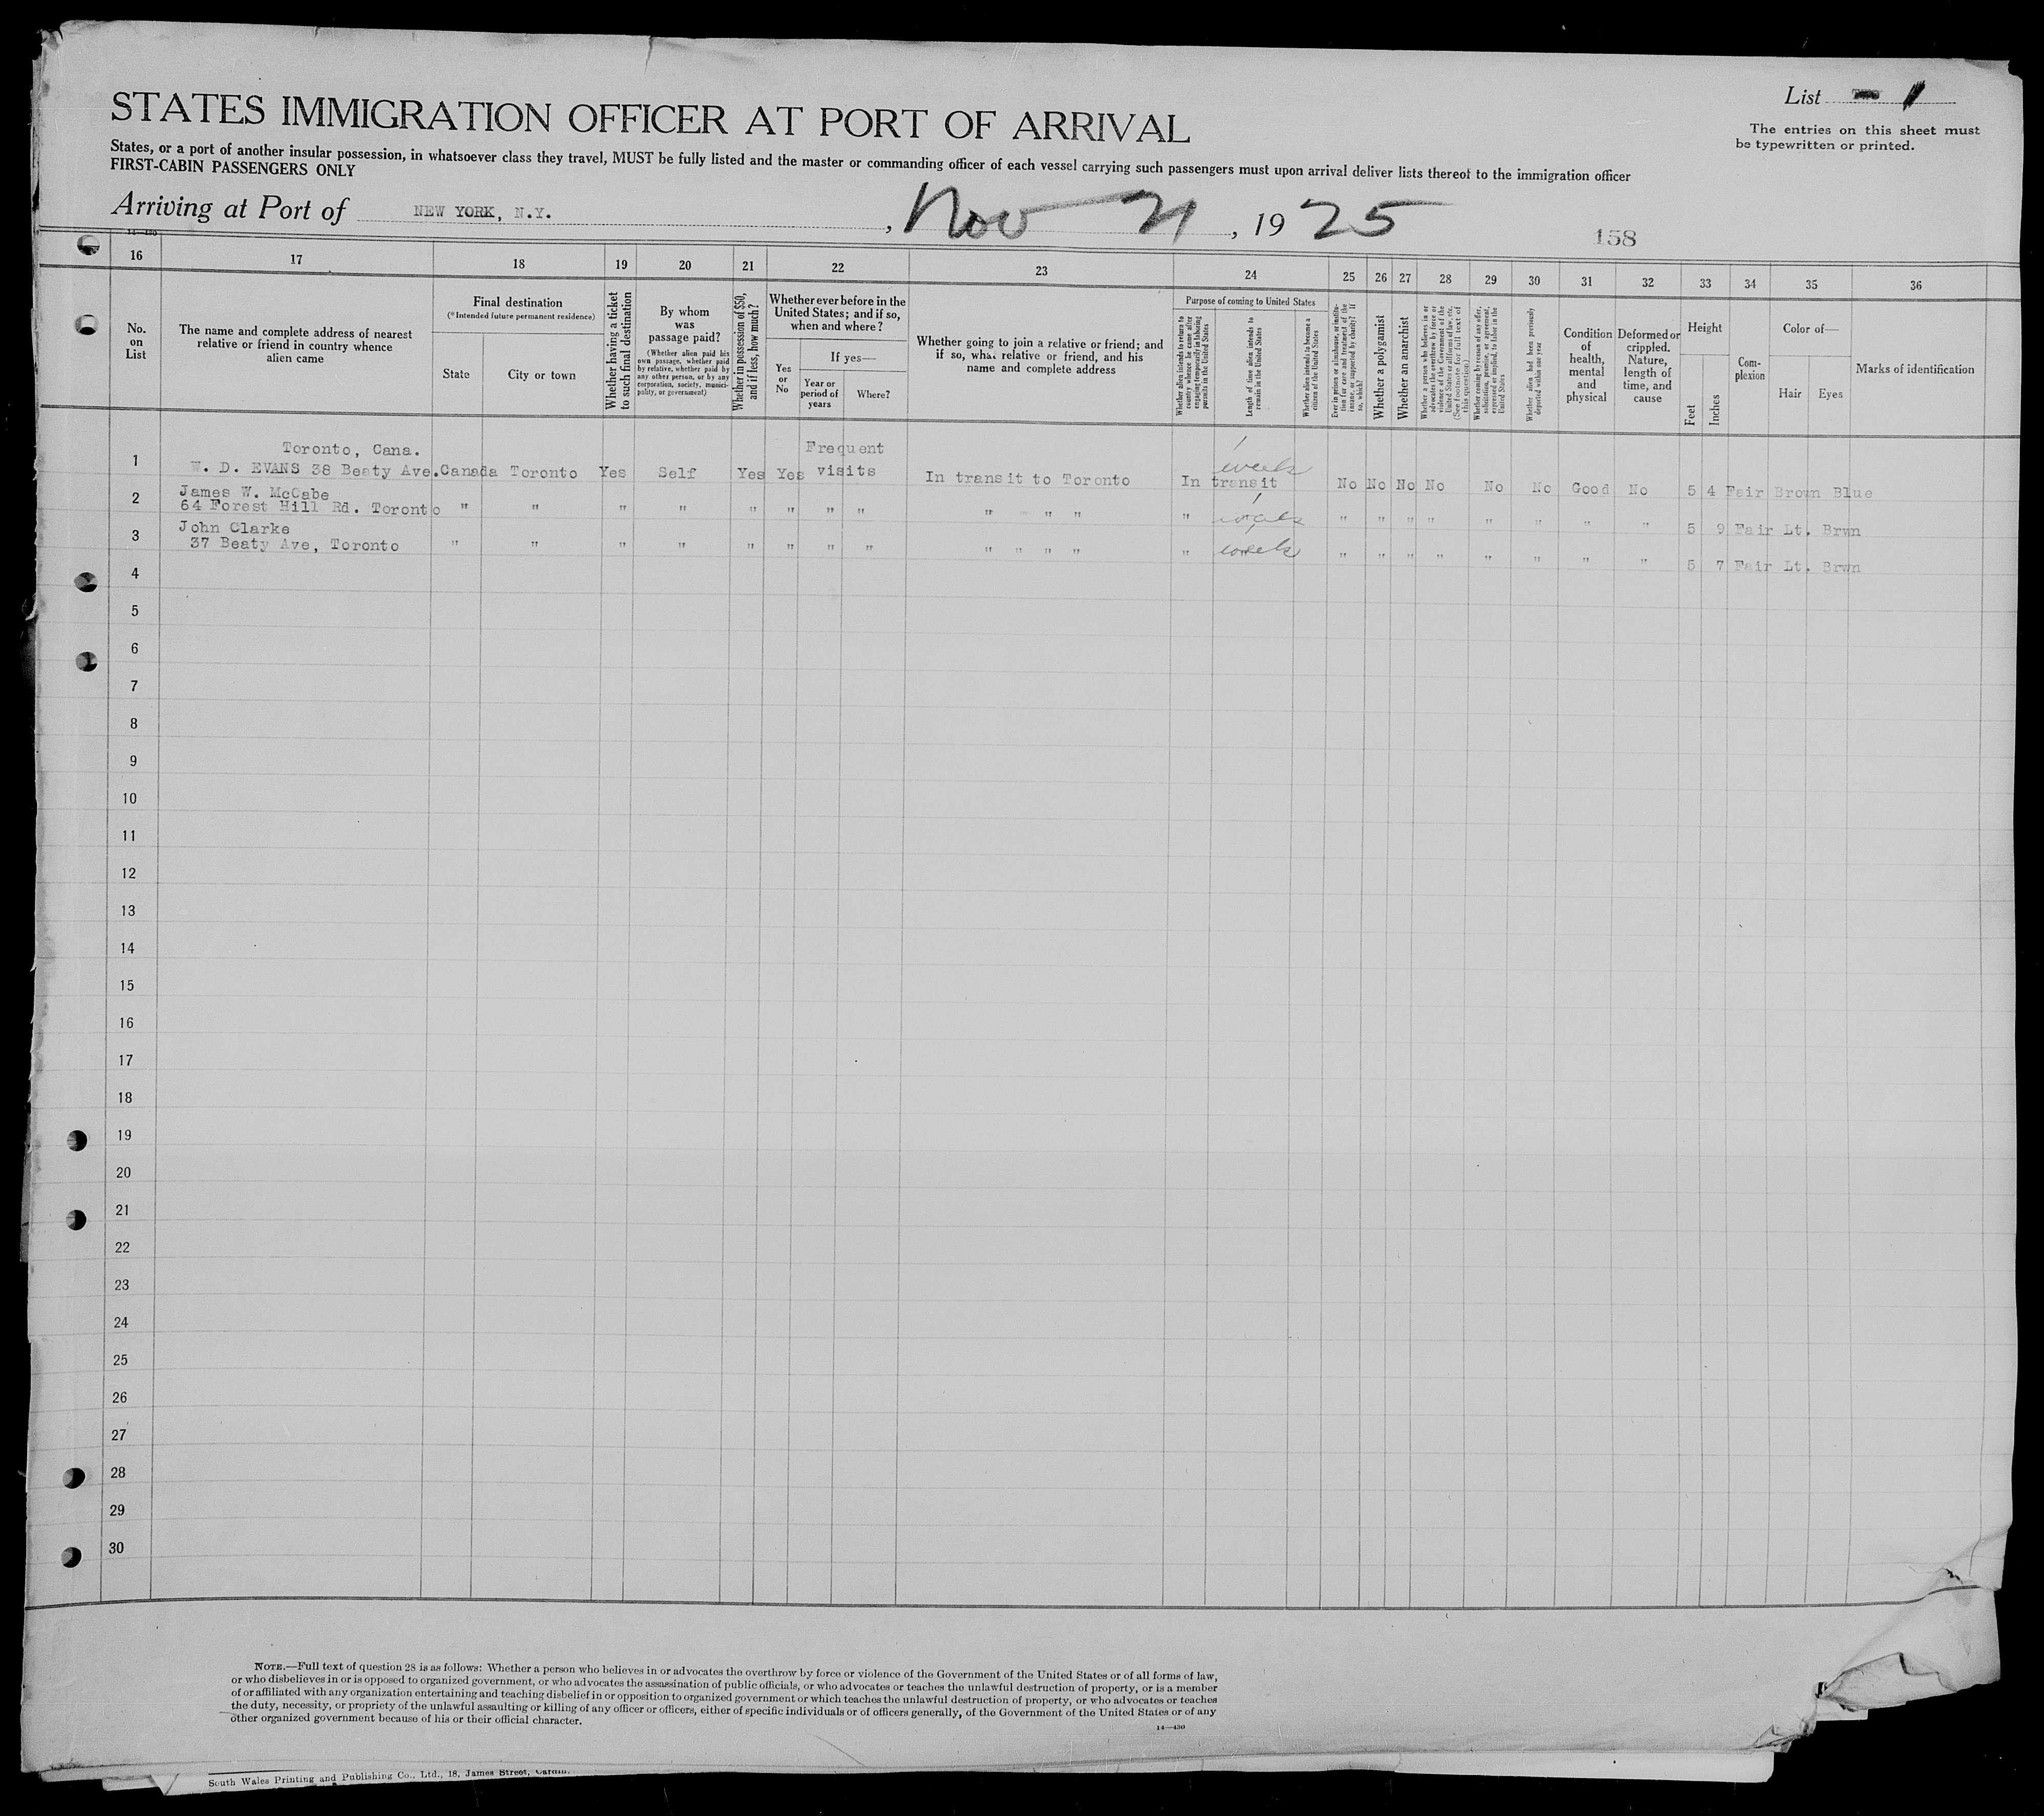 STATES IMMIGRATION OFFICER AT PORT OF ARRIVAL
List 1
The entries on this sheet must
be typewritten or printed.
States, or a port of another insular possession, in whatsoever class they travel, MUST be fully listed and the master or commanding officer of each vessel carrying such passengers must upon arrival deliver lists thereof to the immigration officer
FIRST-CABIN PASSENGERS ONLY
Arriving at Port of NEW YORK, N.Y., Nov 21, 1925
158
14—430
16 17 18 19 20 21 22 23 24 25 26 27 28 29 30 31 32 33 34 35 36
No.
on
List
The name and complete address of nearest
relative or friend in country whence
alien came
Final destination
(*Intended future permanent residence)
State
City or town
Whether having a ticket
to such final destination
By whom
was
passage paid?
(Whether alien paid his
own passage, whether paid
by relative, whether paid by
any other person, or by any
corporation, society, munici-
pality, or government)
Whether in possession of $50,
and if less, how much?
Whether ever before in the
United States; and if so,
when and where?
Yes
or
No
If yes—
Year or
period of
years
Where?
Whether going to join a relative or friend; and
if so, what relative or friend, and his
name and complete address
Purpose of coming to United States
Whether alien intends to return to
country whence he came after
engaging temporarily in laboring
pursuits in the United States
Length of time alien intends to
remain in the United States
Whether alien intends to become a
citizen of the United States
Ever in prison or almshouse, or institu-
tion for care and treatment of the
insane, or supported by charity? If
so, which?
Whether a polygamist
Whether an anarchist
Whether a person who believes in or
advocates the overthrow by force or
violence of the Government of the
United States or all forms of law, etc.
(See footnote for full text of
this question)
Whether coming by reason of any offer,
solicitation, promise, or agreement,
expressed or implied, to labor in the
United States
Whether alien had been previously
deported within one year
Condition
of
health,
mental
and
physical
Deformed or
crippled.
Nature,
length of
time, and
cause
Height
Feet
Inches
Com-
plexion
Color of—
Hair
Eyes
Marks of identification
Toronto, Cana. Frequent 1
1 W. D. EVANS 38 Beaty Ave. Canada Toronto Yes Self Yes Yes visits In transit to Toronto In transit week No No No No No No Good No 5 4 Fair Brown Blue
James W. McCabe
2 64 Forest Hill Rd. Toronto " " " " " " " " " " " " 1 week " " " " " " " " 5 9 Fair Lt. Brwn
John Clarke
3 37 Beaty Ave, Toronto " " " " " " " " " " " " " week " " " " " " " " 5 7 Fair Lt. Brwn
4
5
6
7
8
9
10
11
12
13
14
15
16
17
18
19
20
21
22
23
24
25
26
27
28
29
30
NOTE.—Full text of question 28 is as follows: Whether a person who believes in or advocates the overthrow by force or violence of the Government of the United States or of all forms of law,
or who disbelieves in or is opposed to organized government, or who advocates the assassination of public officials, or who advocates or teaches the unlawful destruction of property, or is a member
of or affiliated with any organization entertaining and teaching disbelief in or opposition to organized government or which teaches the unlawful destruction of property, or who advocates or teaches
the duty, necessity, or propriety of the unlawful assaulting or killing of any officer or officers, either of specific individuals or of officers generally, of the Government of the United States or of any
other organized government because of his or their official character.
14—430
South Wales Printing and Publishing Co., Ltd., 18, James Street,